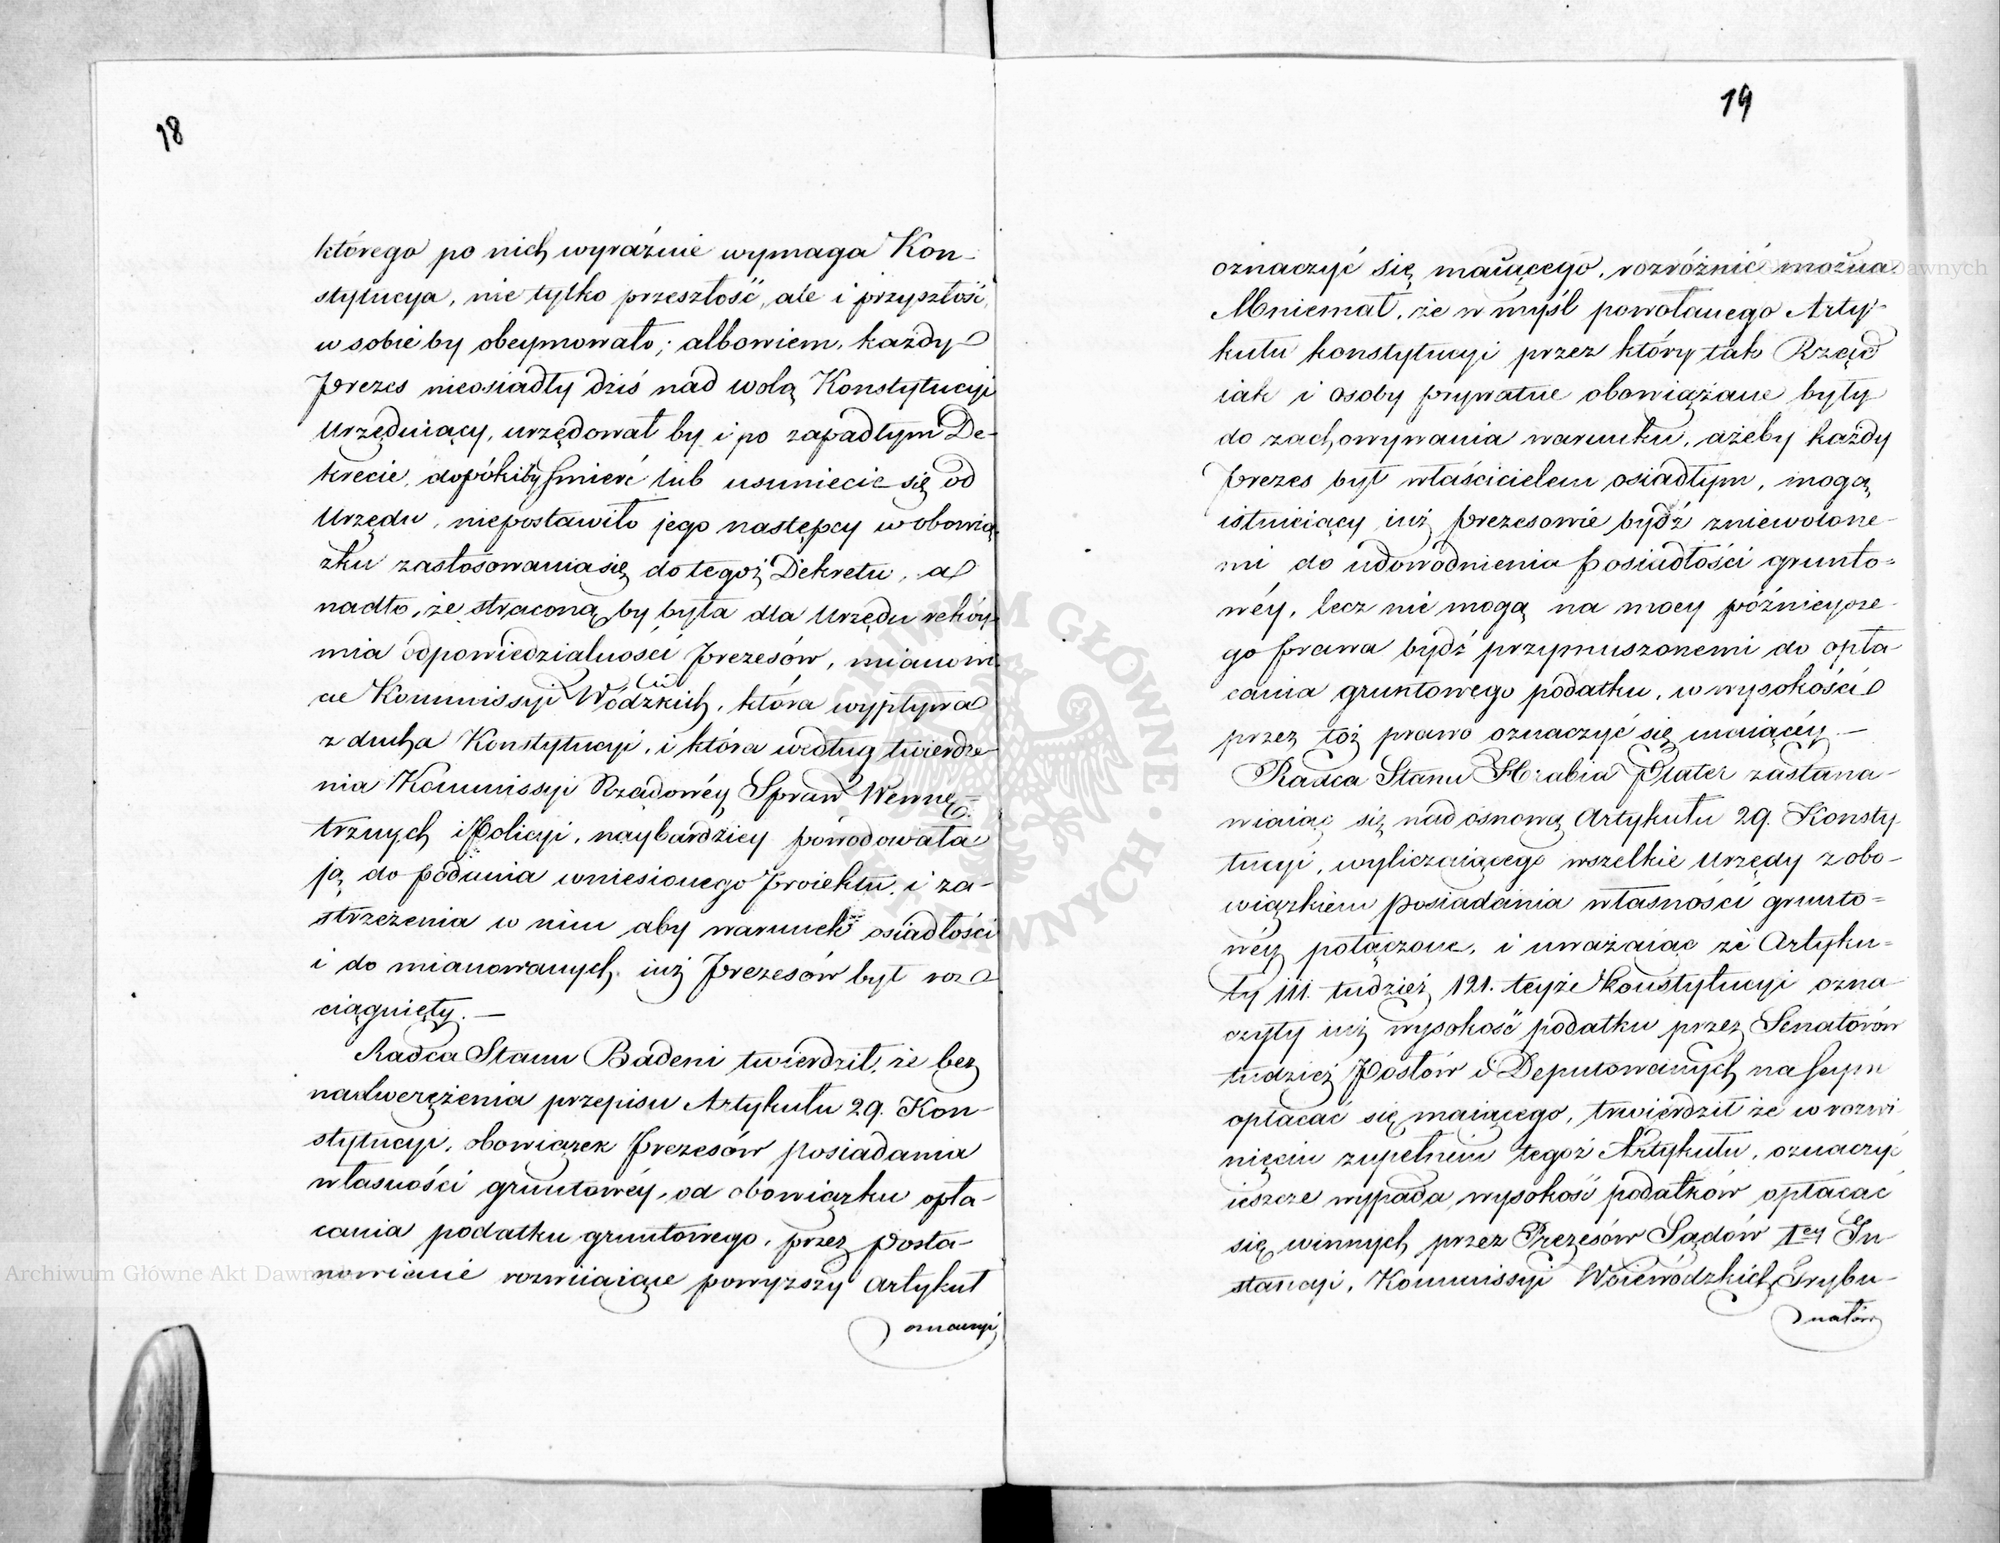 18
którego po nich wyraźnie wymaga Kon-
stytucya, nie tylko przeszłość, ale i przyszłość,
w sobie by obeymowało; albowiem, każdy
Prezes nieosiadły dziś nad wolą Konstytucyi
Urzęduiący, urzędował by i po zapadłym De-
krecie, dopókiby śmierć lub usuniecie się od
Urzędu, niepostawiło jego następcy w obowią
zku zastosowania się do tegoż Dekretu, a
nadto, że straconą by była dla Urzędu rękoy-
mia odpowiedzialności Prezesów, mianowi
cie Kommissyi Wódzkich, która wypływa
z ducha Konstytucyi, i która według twierdze
nia Kommissyi Rządowéy Spraw Wewnę-
trznych i Policyi, naybardziey powodowała
ją do podania wniesionego Proiektu, i za-
strzeżenia w nim aby warunek osiadłości
i do mianowanych iuż Prezesów był roz
ciągnięty. —
Radca Stanu Badeni twierdził, że bez
nadwerężenia przepisu Artykułu 29. Kon-
stytucyi, obowiązek Prezesów posiadania
własności gruntowéy, od obowiązku opła-
cania podatku gruntowego, przez Posta-
nowienie rozwiiaiące powyższy Artykuł
oznaczyć
19
oznaczyć się maiącego, rozróżnić można
Mniemał, że w myśl powołanego Arty-
kułu konstytucyi przez który tak Rząd
iak i osoby prywatne obowiązane były
do zachowywania warunku, ażeby każdy
Prezes był właścicielem osiadłym, mogą
istnieiący iuż Prezesowie bydź zniewolone-
mi do udowodnienia Posiadłości grunto=
wéy, lecz nie mogą na mocy późnieysze-
go Prawa bydź przymuszonemi do opła-
cania gruntowego podatku, w wysokości
przez toż prawo oznaczyć się maiącéy. —
Radca Stanu Hrabia Plater zastana-
wiaiąc się nad osnową Artykułu 29. Konsty-
tucyi, wyliczaiącego wszelkie Urzędy z obo-
wiązkiem posiadania własności grunto=
wéy połączone, i uważaiąc że Artyku=
ły 111. tudzież 121. teyże Konstytucyi ozna-
czyły iuż wysokość podatku przez Senatorów
tudzież Posłów i Deputowanych na Seym
opłacać się maiącego, twierdził że w rozwi-
nięciu zupełném tegoż Artykułu, oznaczyć
ieszcze wypada wysokość podatków opłacać
się winnych przez Prezesów Sądów 1ey In-
stancyi, Kommissyi Woiewodzkich Trybu-
nałów